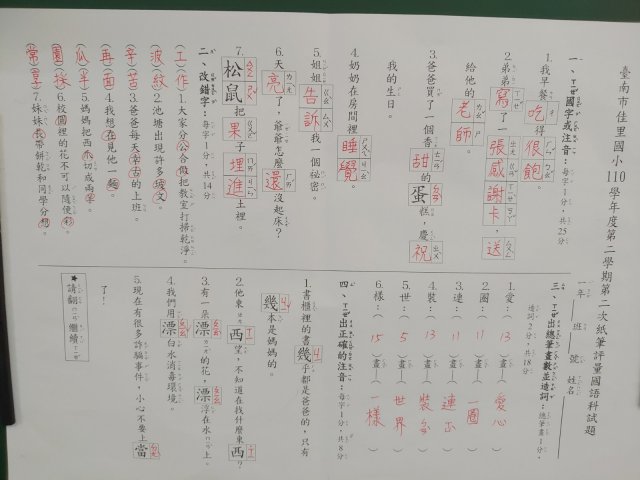 臺南市佳里國小110學年度第二學期第二次紙筆評量國語科試題
一年 班 號 姓名
一、國字或注音：每字1分，共25分
1.我早餐吃得很飽。
2.弟弟寫了一張感謝卡，送
給他的老師。
3.爸爸買了一個香甜的蛋糕，慶祝
我的生日。
4.奶奶在房間裡睡覺。
5.姐姐告訴我一個祕密。
6.天亮了，爺爺怎麼還沒起床？
7.松鼠把果子埋進土裡。
二、改錯字：每字1分，共14分
(工)(作)1.大家分公合做把教室打掃乾淨。
(波)(紋)2.池塘出現許多坡文。
(辛)(苦)3.爸爸每天幸古的上班。
(再)(面)4.我想在見他一麵。
(瓜)(半)5.媽媽把西爪切成兩半。
(園)(採)6.校圓裡的花不可以隨便彩。
(常)(享)7.妹妹長帶餅乾和同學分想。
三、寫出總筆畫數並造詞：總筆畫1分，
造詞2分，共18分
1.愛：(13)畫—(愛心)
2.圈：(11)畫—(一圈)
3.連：(11)畫—(連)
4.裝：(13)畫—(裝)
5.世：(5)畫—(世界)
6.樣：(15)畫—(一樣)
四、寫出正確的注音：每字1分，共8分
1.書櫃裡的書幾ㄐㄧ乎都是爸爸的，只有
幾ㄐㄧˇ本是媽媽的。
2.他東西ㄒㄧ望，不知道在找什麼東西ㄒㄧ？
3.有一朵漂ㄆㄧㄠˋ亮的花，漂ㄆㄧㄠ浮在水上。
4.我們用漂ㄆㄧㄠˇ白水消毒環境。
5.現在有很多詐騙事件，小心不要上當ㄉㄤˋ
了！
★請翻面繼續